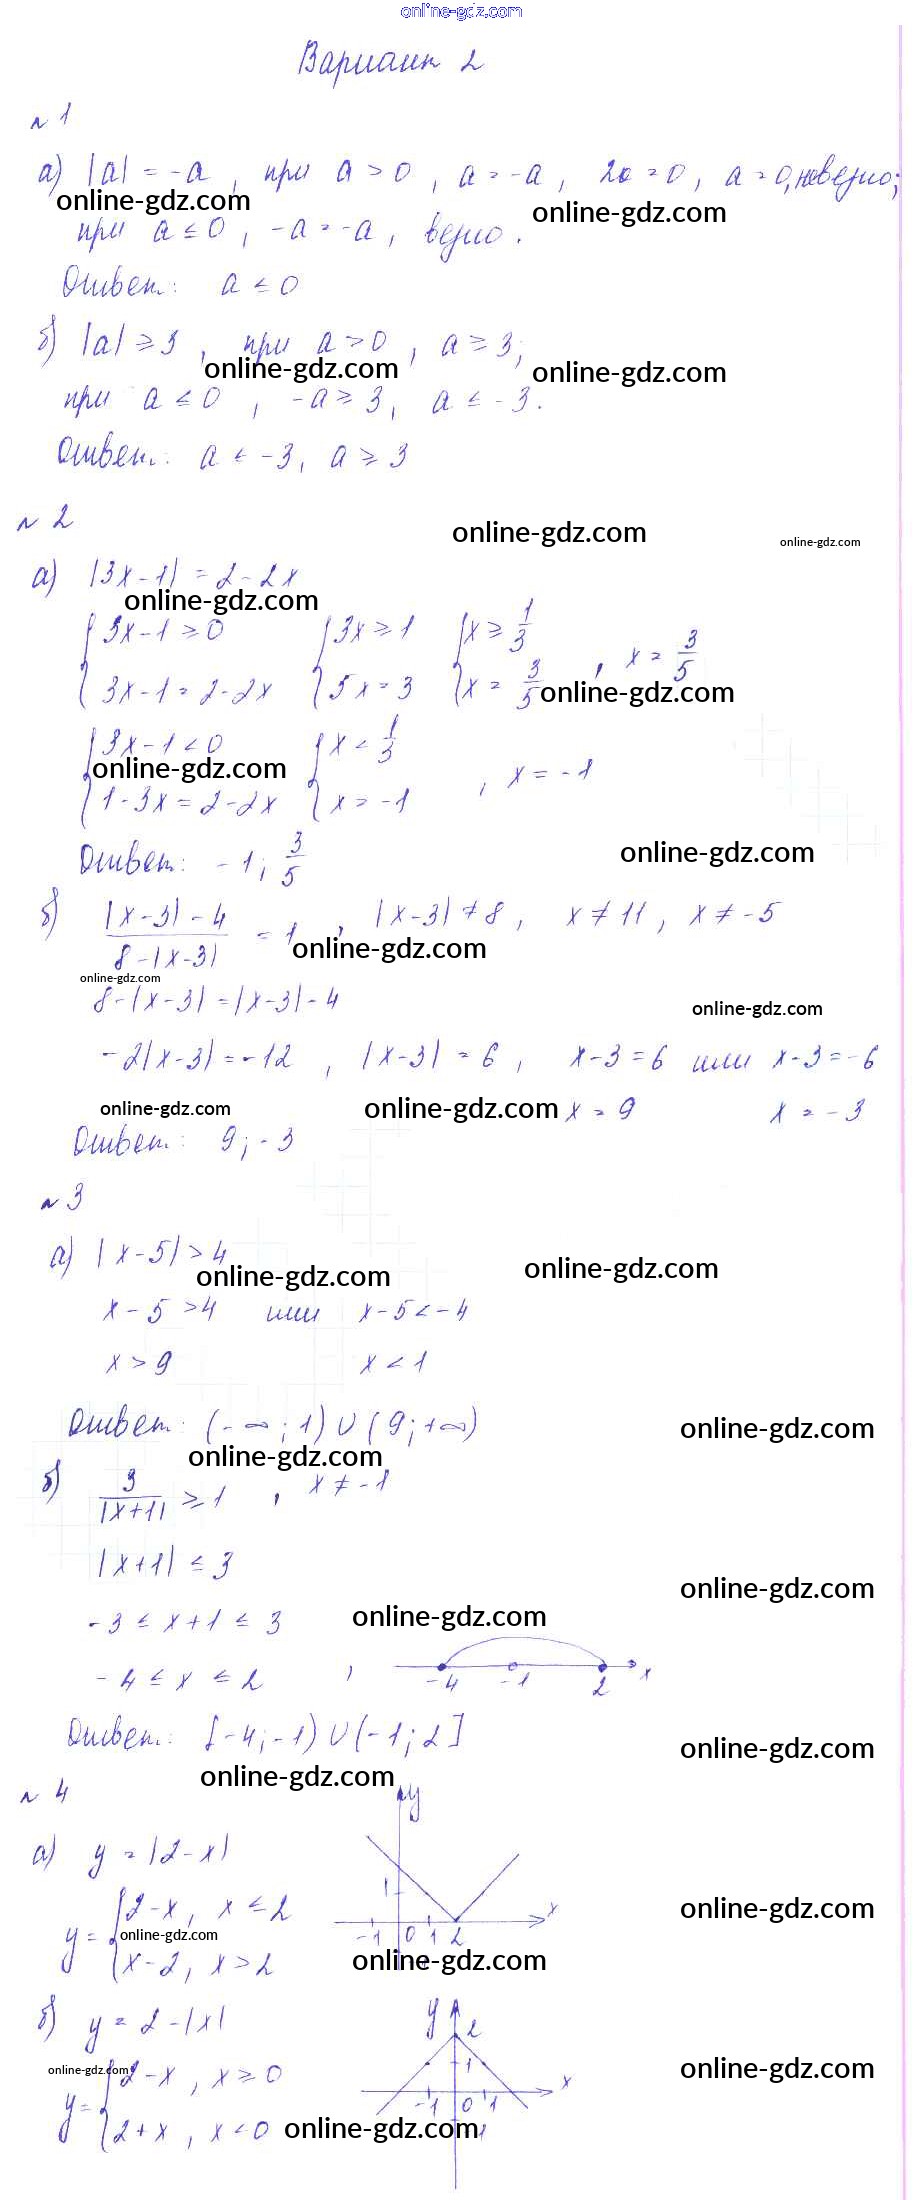 online-gdz.com
Вариант 2
№ 1
а) |a| = -a, при a > 0, a = -a, 2a = 0, a = 0, неверно;
online-gdz.com
online-gdz.com
при a ≤ 0, -a = -a, верно.
Ответ: a ≤ 0
б) |a| ≥ 3, при a > 0, a ≥ 3;
online-gdz.com
online-gdz.com
при a ≤ 0, -a ≥ 3, a ≤ -3.
Ответ: a ≤ -3, a ≥ 3
№ 2
online-gdz.com
online-gdz.com
а) |3x-1| = 2-2x
online-gdz.com
{3x-1 ≥ 0 {3x ≥ 1 {x ≥ 1/3
{3x-1 = 2-2x {5x = 3 {x = 3/5, x = 3/5
online-gdz.com
{3x-1 < 0 {x < 1/3
online-gdz.com
{1-3x = 2-2x {x = -1, x = -1
online-gdz.com
Ответ: -1; 3/5
б) (|x-3|-4)/(8-|x-3|) = 1, |x-3| ≠ 8, x ≠ 11, x ≠ -5
online-gdz.com
online-gdz.com
8-|x-3| = |x-3|-4
online-gdz.com
-2|x-3| = -12, |x-3| = 6, x-3 = 6 или x-3 = -6
online-gdz.com
online-gdz.com
x = 9 x = -3
Ответ: 9; -3
№ 3
а) |x-5| > 4
online-gdz.com
online-gdz.com
x-5 > 4 или x-5 < -4
x > 9 x < 1
Ответ: (-∞; 1) ∪ (9; +∞)
online-gdz.com
online-gdz.com
б) 3/|x+1| ≥ 1, x ≠ -1
|x+1| ≤ 3
online-gdz.com
-3 ≤ x+1 ≤ 3
online-gdz.com
-4 ≤ x ≤ 2,
-4 -1 2 x
Ответ: [-4; -1) ∪ (-1; 2]
online-gdz.com
online-gdz.com
№ 4
y
а) y = |2-x|
1
y = {2-x, x ≤ 2
online-gdz.com
x
-1 0 1 2
online-gdz.com
{x-2, x > 2
online-gdz.com
б) y = 2-|x|
y
2
1
online-gdz.com
online-gdz.com
y = {2-x, x ≥ 0
x
-1 0 1
{2+x, x < 0
online-gdz.com
-1